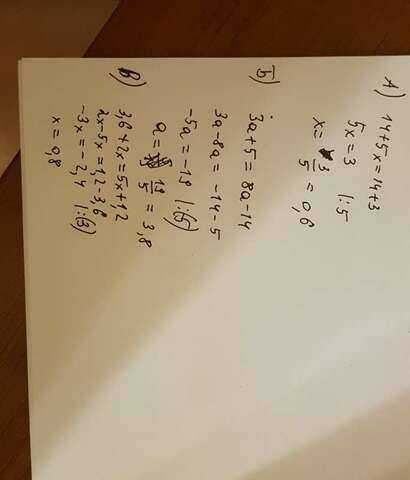 А)
14+5x=14+3
5x=3 |:5
x= 3/5 = 0,6
Б)
3a+5=8a-14
3a-8a=-14-5
-5a=-19 |:(-5)
a= 19/5 = 3,8
в)
3,6+2x=5x+1,2
2x-5x=1,2-3,6
-3x=-2,4 |:(-3)
x=0,8